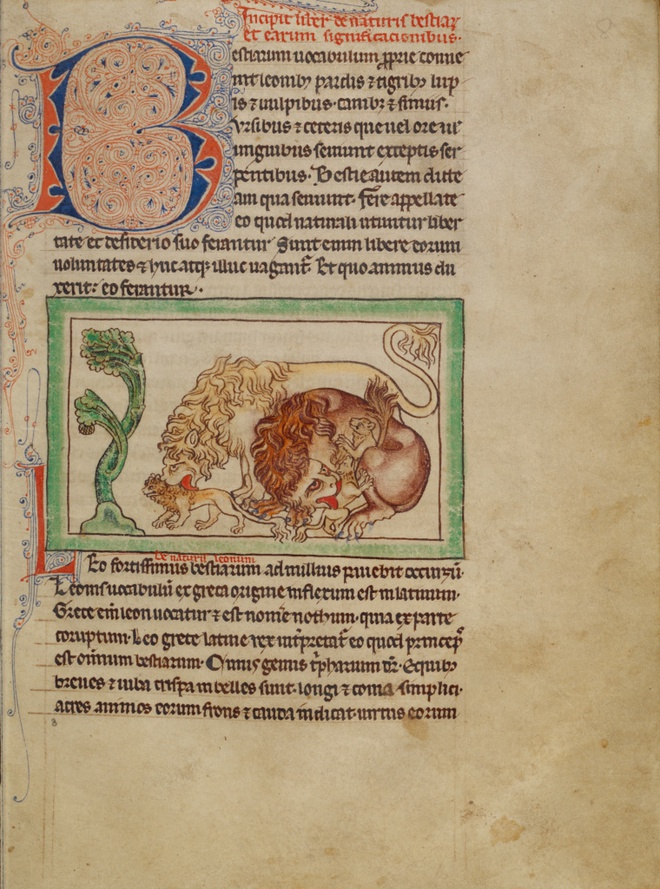 Incipit liber de naturis bestiar
et earum significacionibus.
Bestiarum uocabulum proprie conue
nit leonibus pardis et tigribus lup
is et uulpibus. canibus et simiis.
Vrsibus et ceteris que uel ore uel
unguibus seuiunt exceptis ser
pentibus. Bestie autem dicte
am qua seuiunt. Fere appellate
eo quod naturali utuntur liber
tate et desiderio suo ferantur Sunt enim libere eorum
uoluntates et huc atque illuc uagantur. Et quo animus du
xerit: eo ferantur.
De naturis leonum
Leo fortissimus bestiarum ad nullius pauebit occursum.
Leonis uocabulum ex greca origine inflexum est in latinum.
Grece enim leon uocatur et est nomen nothum. quia ex parte
corruptum. Leo grece latine rex interpretatur eo quod princeps
est omnium bestiarum. Cuius genus tripharium dicitur. E quibus
breues et iuba crispa inbelles sunt. longi et coma simplici.
acres animos eorum frons et cauda indicat. uirtus eorum